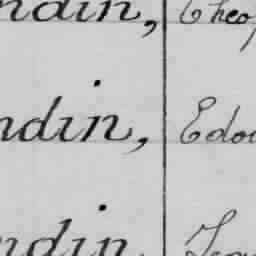 ndin, Theo
ndin, Edou
ndin, Jea